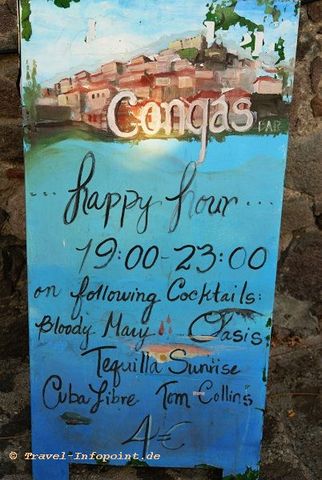 Congas
BAR
... happy hour ...
19:00-23:00
on following Cocktails:
Bloody Mary Oasis
Tequilla Sunrise
Cuba Libre Tom Collins
4€
© Travel-Infopoint.de